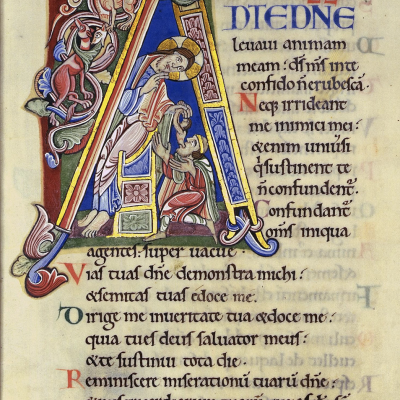 AD TE DNE
levavi animam
meam: ds ms in te
confido n erubescā.
Neq; irrideant
me inimici mei:
&enim univsi
q sustinent te
n confundent.
Confundant
oms iniqua
agentes: super vacue.
Vias tuas dne demonstra michi:
&semitas tuas edoce me.
Dirige me in veritate tua &doce me:
quia tu es deus salvator meus:
&te sustinui tota die.
Reminiscere miserationū tuarū dne: